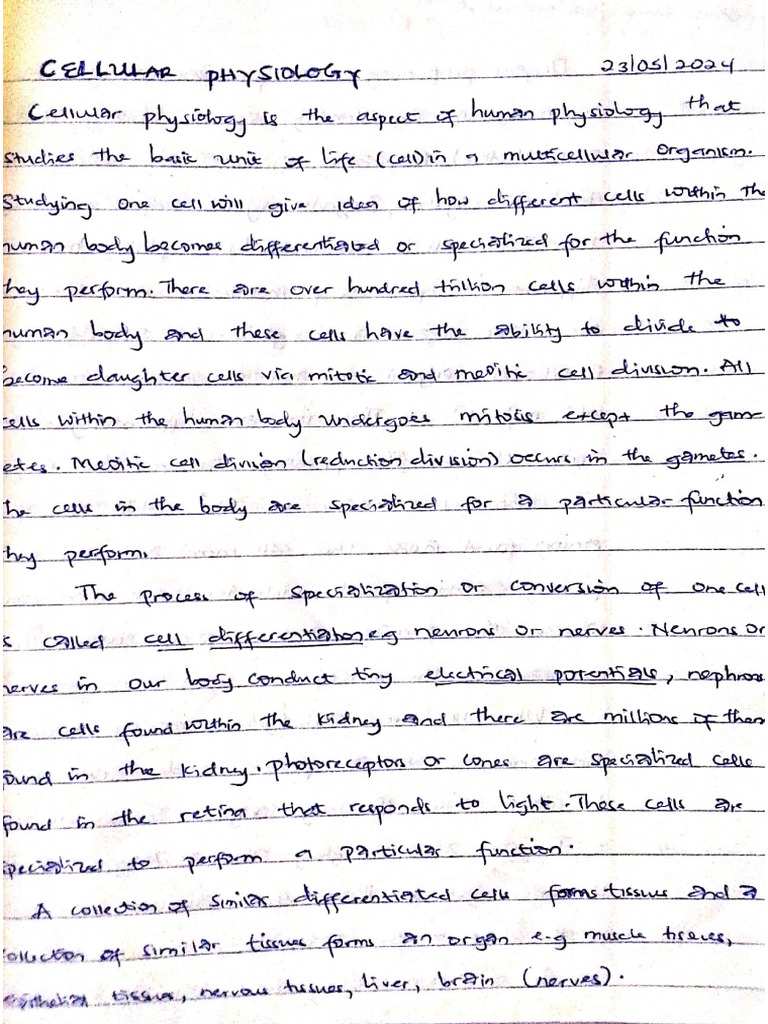 CELLULAR PHYSIOLOGY 23/05/2024
Cellular physiology is the aspect of human physiology that
studies the basic unit of life (cell) in a multicellular organism.
Studying one cell will give idea of how different cells within the
human body becomes differentiated or specialized for the function
they perform. There are over hundred trillion cells within the
human body and these cells have the ability to divide to
become daughter cells via mitotic and meoitic cell division. All
cells within the human body undergoes mitosis except the gam-
etes. Meoitic cell division (reduction division) occurs in the gametes.
The cells in the body are specialized for a particular function
they perform.
The process of specialization or conversion of one cell
is called cell differentiation e.g neurons or nerves. Neurons or
nerves in our body conduct tiny electrical potentials, nephrons
are cells found within the kidney and there are millions of them
found in the kidney. Photoreceptors or cones are specialized cells
found in the retina that responds to light. These cells are
specialized to perform a particular function.
A collection of similar differentiated cells forms tissues and a
collection of similar tissues forms an organ e.g muscle tissues,
epithelial tissues, nervous tissues, liver, brain (nerves).